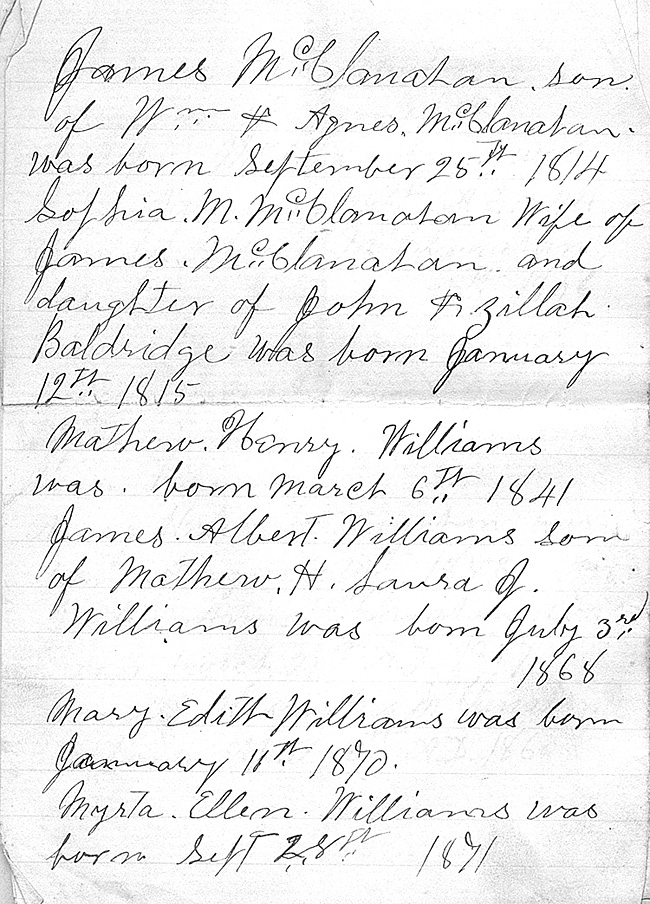 James McClanahan. son.
of Wm & Agnes. McClanahan.
was born September 25th 1814
Sophia. M. McClanahan Wife of
James. McClanahan. and
daughter of John & zillah
Baldridge was born January
12th 1815
Mathew. Henry. Williams
was. born March 6th 1841
James. Albert. Williams son
of Mathew. H. Laura J.
Williams was born July 3rd
1868
Mary. Edith Williams was born
January 11th 1870.
Myrta. Ellen. Williams was
born Sept 28th 1871